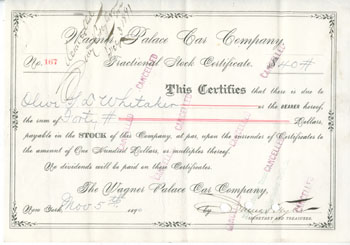 Wagner Palace Car Company.
No. 167 Fractional Stock Certificate. 40
CANCELLED
This Certifies that there is due to
Whitaker or the BEARER hereof,
the sum of Forty Dollars,
payable in the STOCK of this Company, at par, upon the surrender of Certificates to
the amount of One Hundred Dollars, or multiples thereof.
No dividends will be paid on these Certificates.
The Wagner Palace Car Company,
New York, Nov 5 189 by
SECRETARY AND TREASURER.